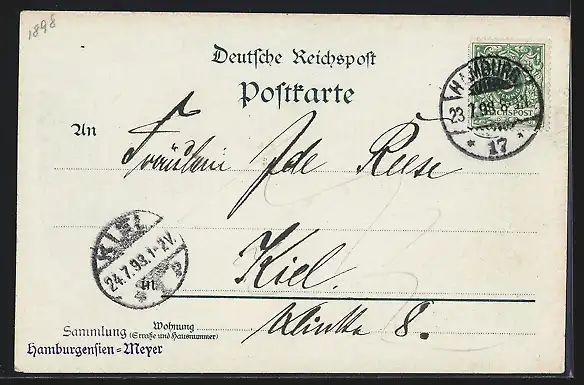 1898
Deutsche Reichspost
Postkarte
HAMBURG
23.7.98.
* 17 *
REICHSPOST
An
Fräulein Ide Reese
KIEL
24.7.98. 1-2V.
Kiel.
8.
Wohnung
(Straße und Hausnummer)
Sammlung
Hamburgensien-Meyer